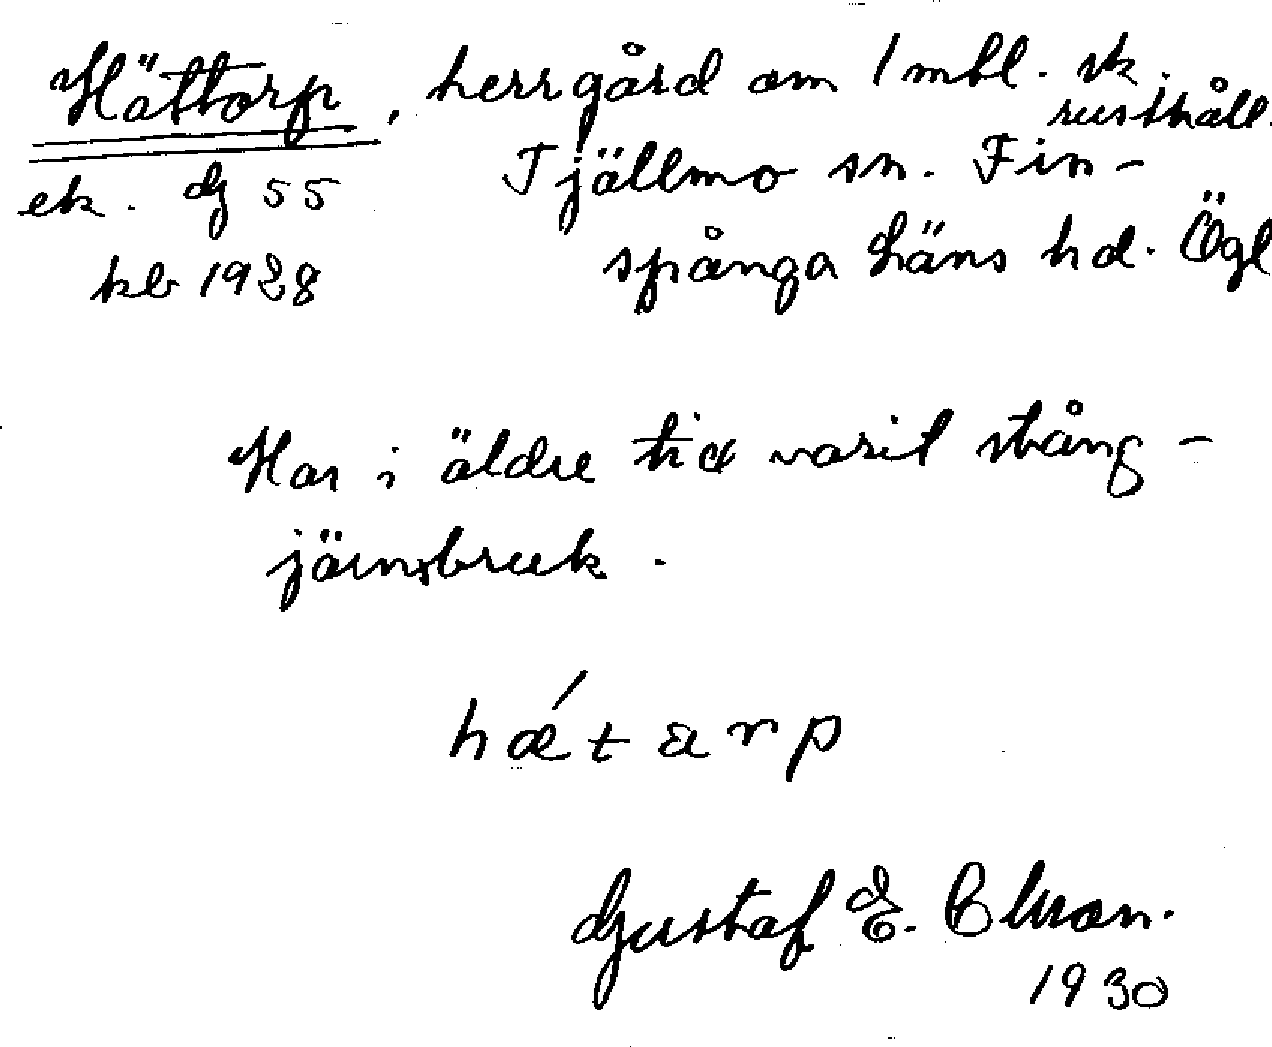 Hättorp, herrgård om 1 mtl. sk.
rusthåll.
ek. dj 55 Tjällmo sn. Fin-
kb 1928 spånga läns hd. Ögl
Har i äldre tid varit stång-
järnsbruk.
hǽtarp
Gustaf E.
1930